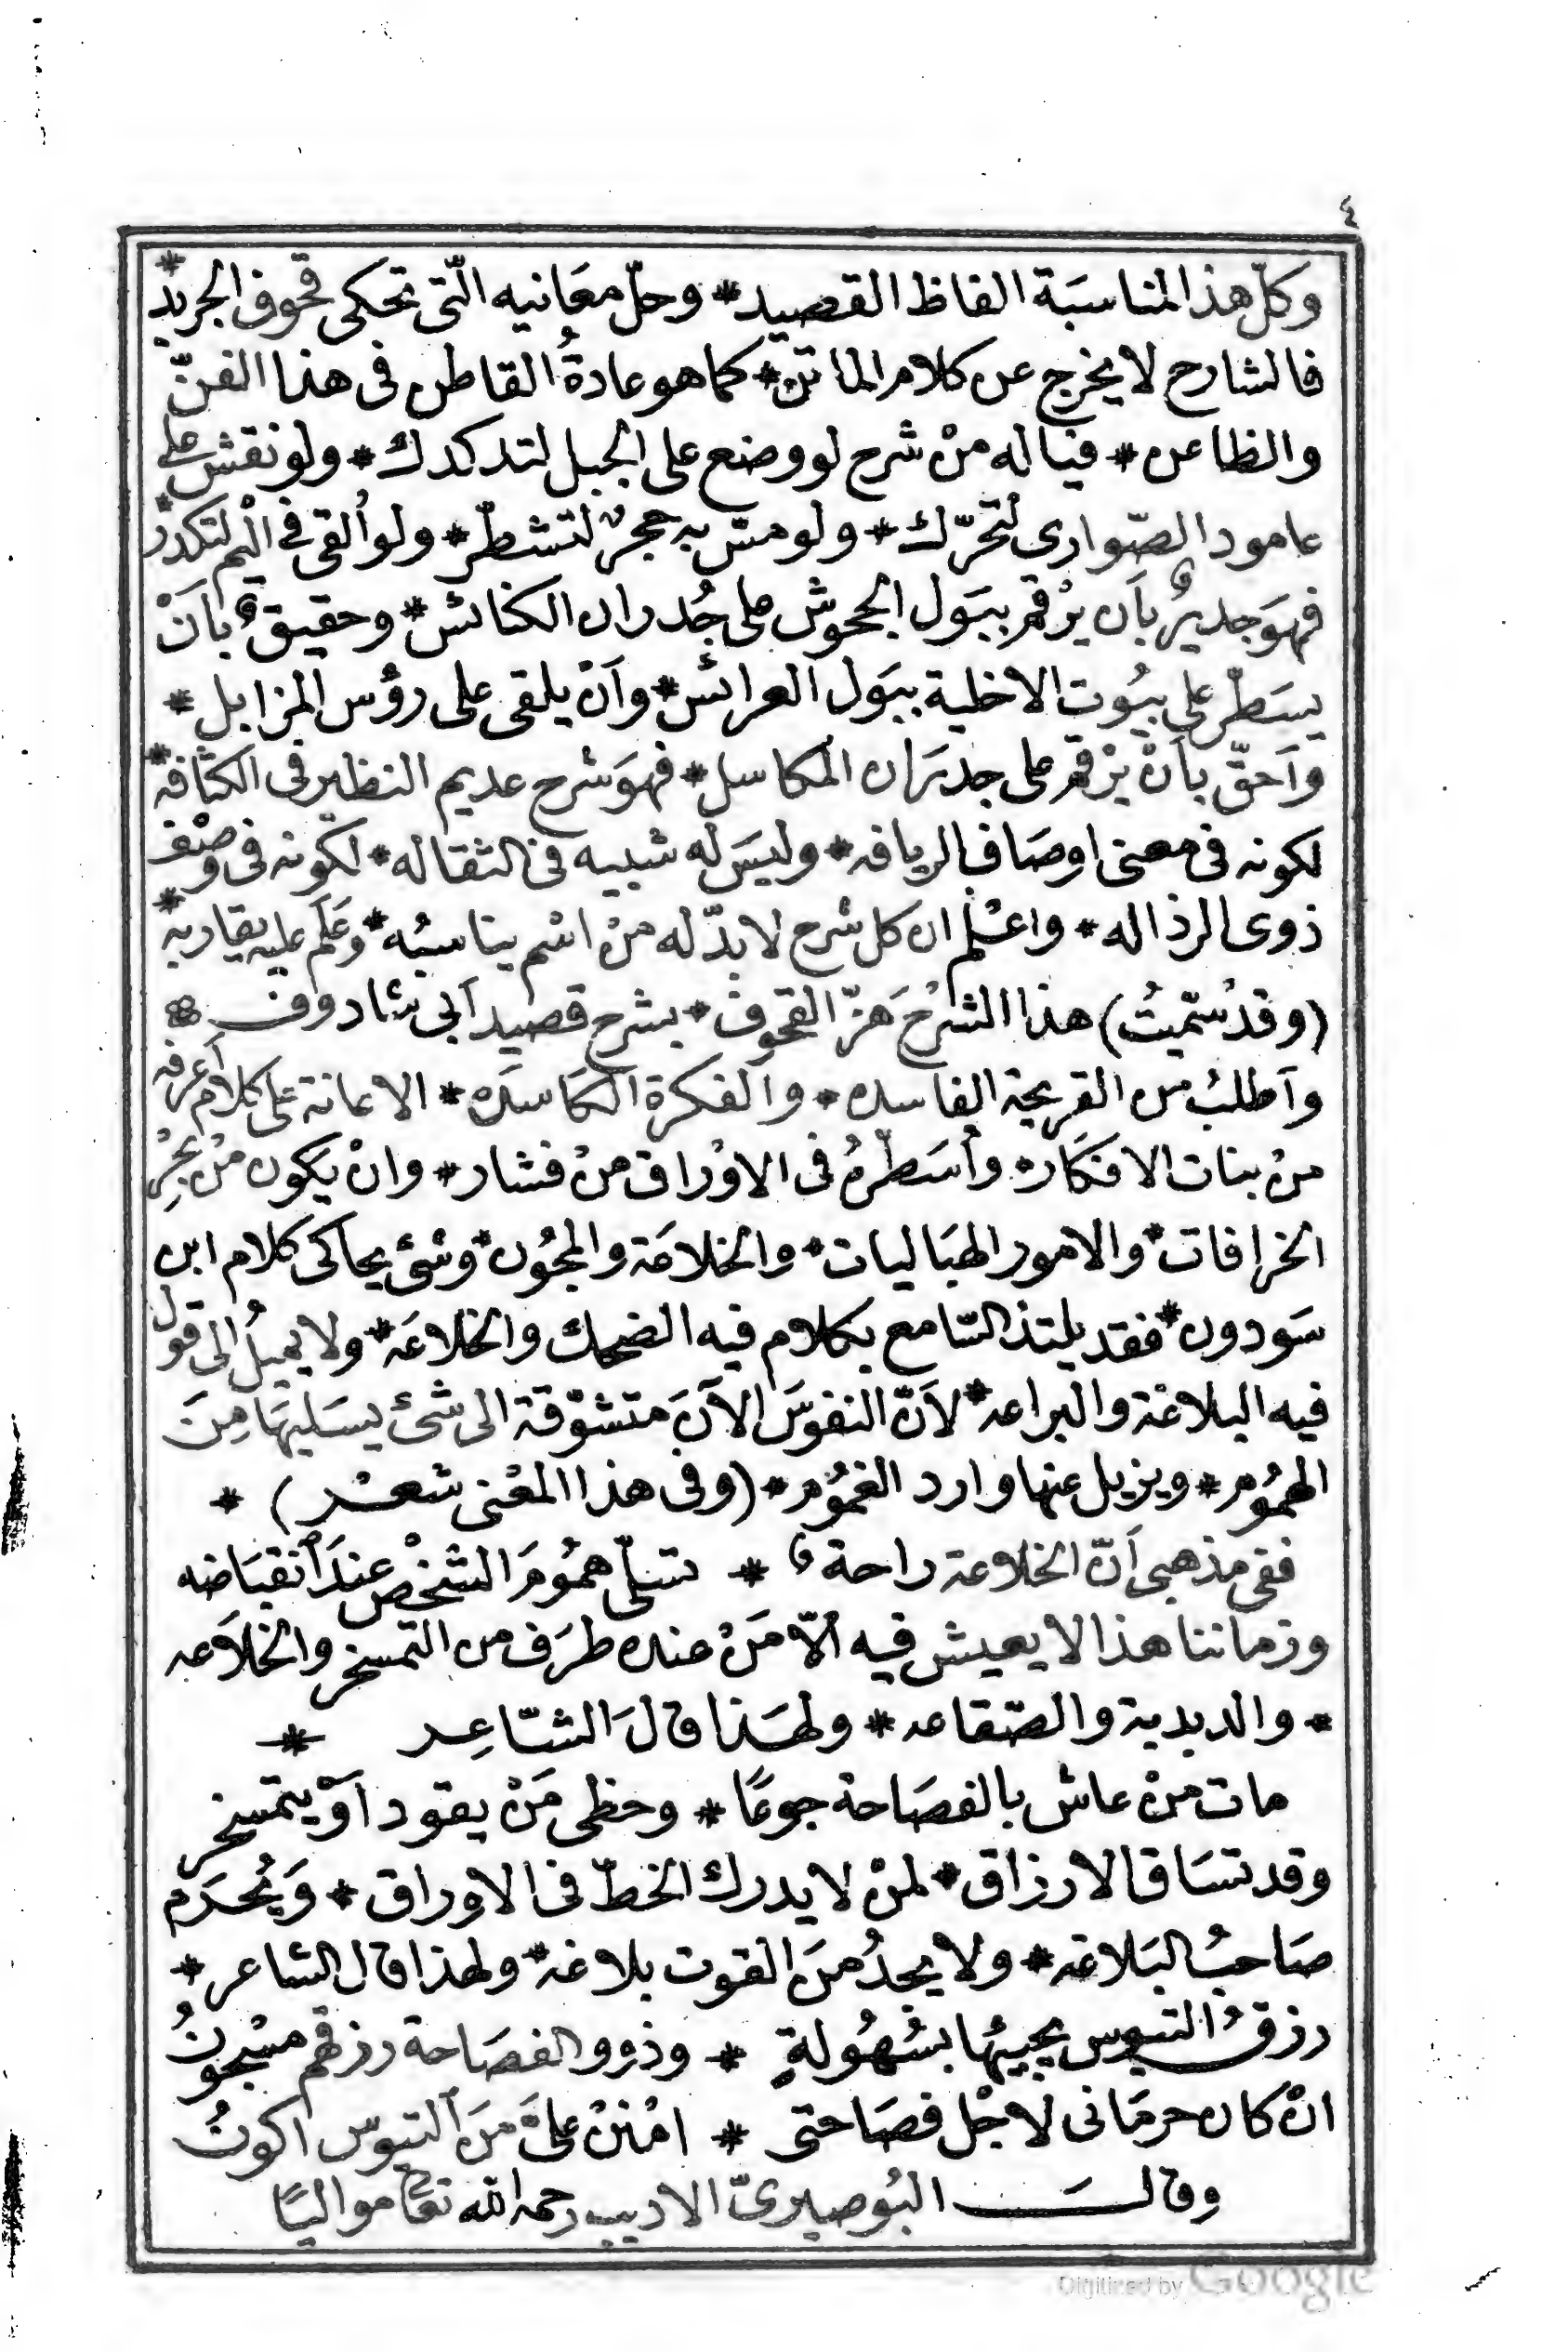 ٤
وكلّ هذا لمناسبَة الفاظ القصيد * وحلّ معَانيه الّتى تحكى قحوف الجريد *
فالشارح لا يخرج عن كلام الماتن * كما هو عادةُ القاطن فى هذا الفنّ
والظاعن * فياله منْ شرح لو وضع على الجبل لتدكدك * ولو نقش على
عامود الصّوارى لتحرّك * ولو مسّ به حجرٌ لتشطّر * ولو اُلقى فى الْيم لتكدّر *
فهوَ جديرٌ بأن يرْقم ببَول الجحوش على جُدران الكنائس * وحقيقٌ بأنْ
يسَطّر على بيُوت الاخلية ببَول العرائس * وأنْ يلقى على رؤس المزابل *
وأحقّ بأنْ يرْقم على جدرَان المكاسل * فهوَ شرح عديم النظير فى الكثافة *
لكونه فى معنى اوصَاف الريافه * وليسَ له شبيه فى الثقاله * لكونه فى وصْف
ذوى الرذاله * واعْلم ان كل شرح لا بدّ له منْ اسْم يناسبُه * وعَلَم عليه يقاربه *
(وقدْ سمّيتُ) هذا الشرْحَ هَزّ القحوف * بشرح قصيد أبى شادوف
وأطلبُ من القريحة الفاسده * والفكرة الكاسدَه * الاعانة على كلام أعرفه
منْ بنات الافكَار * وأسَطّرهُ فى الاوْراق منْ فشار * وانْ يكون منْ بحْرِ
الخرافات * والامور الهبَاليات * والخلاعَة والمجُون * وشئ يحاكى كلام ابن
سَودون * فقد يلتذ السّامع بكلام فيه الضحك والخلاعَه * ولا يميلُ الى قول
فيه البلاغة والبراعه * لأنّ النفوسَ الآنَ متشوّقة الى شئ يسَليهَا مِنَ
الهمُوم * ويزيل عنها وارد الغمُوم * (وفى هذا المعْنى شعْر) *
ففى مذهبى أنّ الخلاعة راحة * تسلّى همُومَ الشخْص عندَ أنقبَاضه
وزماننا هذا لا يعيش فيه الّا مَنْ عنده طرَف من التمسخر والخلاَعه
* والدبدبة والصّقاعه * ولهَذا قالَ الشّاعِر *
مات منْ عاش بالفصَاحة جوعًا * وحظى مَنْ يقود أوْ يتمسخر
وقد تسَاق الارزاق * لمنْ لا يدرك الخطّ فى الاوراق * وَيُحرَم
صَاحبُ البَلاغه * ولا يجدُ منَ القوت بلاغة * ولهذا قال الشاعر *
رزقُ التيوس يجيئها بسُهُولةٍ * وذوو الفصَاحة رزقهم مسْجُونُ
انْ كان حرمَانى لاجْل فصَاحتى * امْننْ علىَّ منَ ألتيوس اكونُ
وقالَ البُوصيرىّ الاديب رحمه الله تعالى مواليًا
Digitized by Google